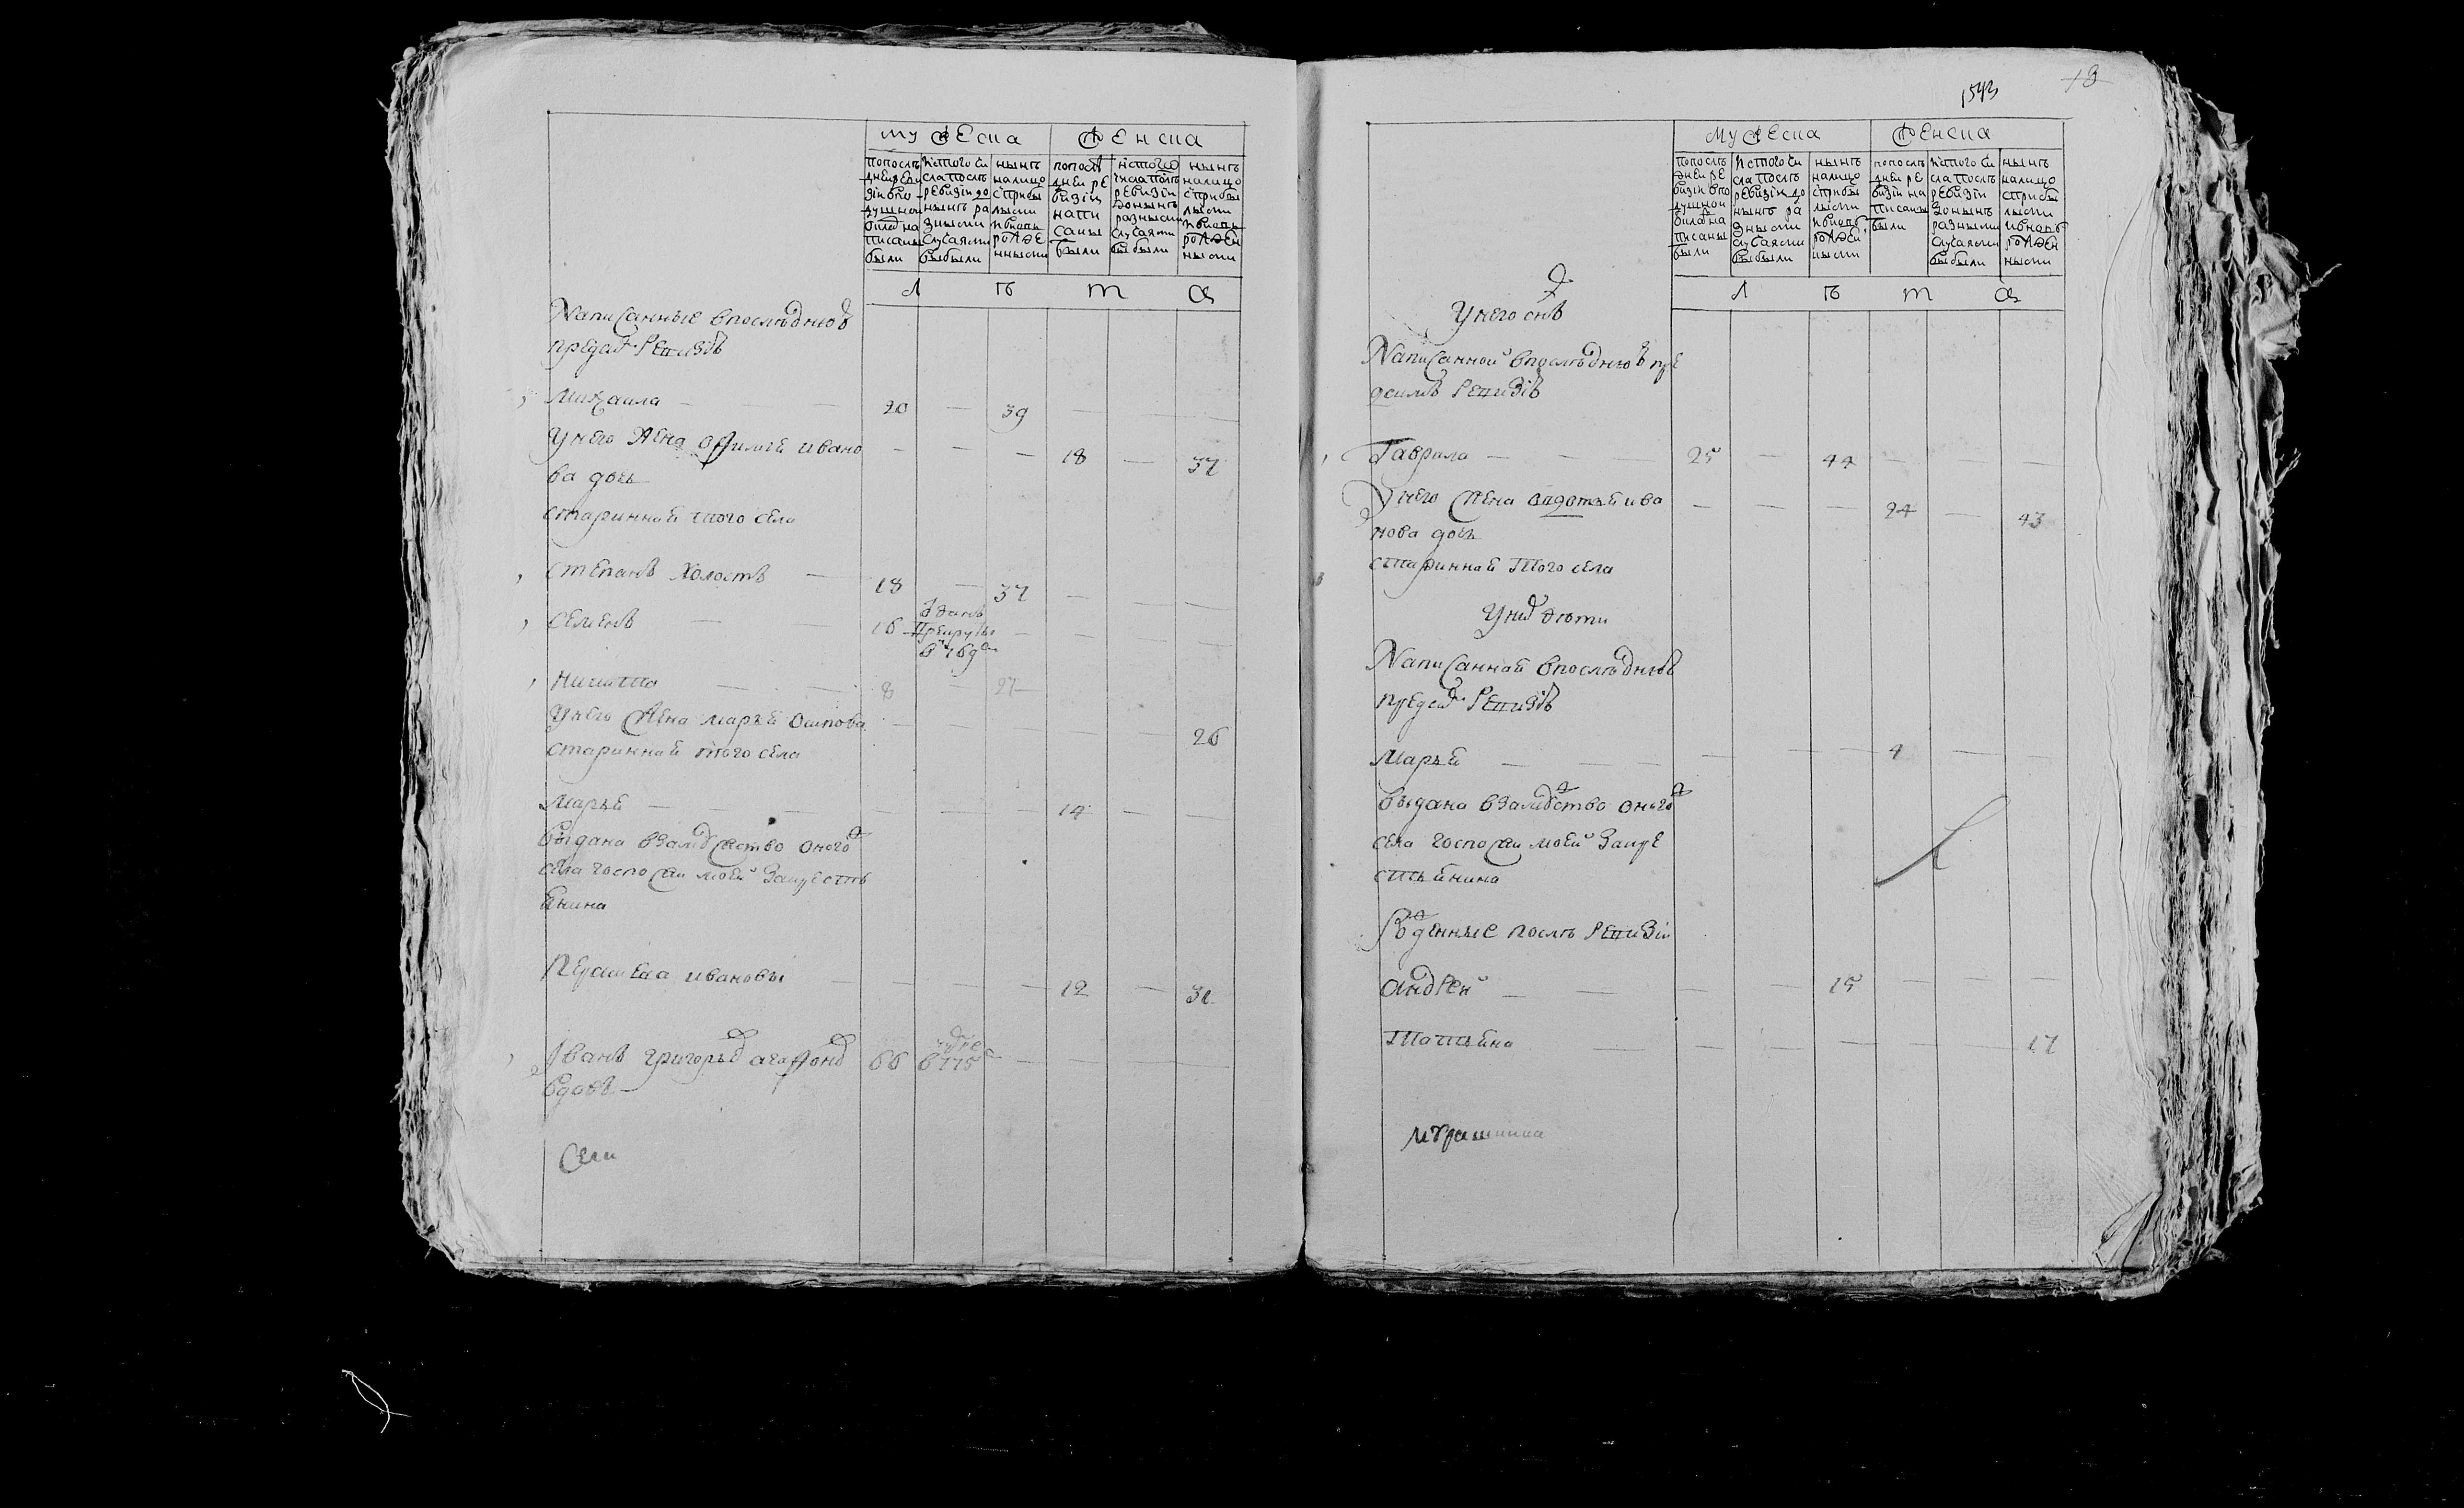 мужеска
женска
попослѣ
днеи реви
зіи впо
душнои
окладъ на
писаны
были
ис того чи
сла послѣ
ревизіи до
нынѣ ра
зными
случаями
выбыли
нынѣ
налицо
с прибы
лыми
и вновь
рожде
нными
попослѣ
днеи ре
визіи
напи
саны
были
ис того
числа послѣ
ревизіи
до нынѣ
разными
случаями
выбыли
нынѣ
налицо
с прибы
лыми
и вновь
рожден
ными
л ѣ т а
Написанные впослѣднюю
предъ ревизію
Михаила — 20 — 39 — — —
У него жена Офимья Ивано — — — 18 — 37
ва дочь
старинная того села
Степанъ холостъ — 18 — 37 — — —
Семенъ — 16 — — — —
отданъ
в рекруты
в 769 го
Никита — 8 — 27
У него жена Марья Осипова — — — — — 26
старинная того села
Марья — — — — 14 — —
выдана взамужство оного
села госпожи моей за кресть
янина
Парасковья Ивановы — — — — 12 — 31
Иванъ Григорьевъ Агафоновъ 66 — — — —
вдовъ
Сели
1543
мужеска
женска
попослѣ
днеи ре
визіи впо
душнои
окладъ на
писаны
были
ис того чи
сла послѣ
ревизіи до
нынѣ ра
зными
случаями
выбыли
нынѣ
налицо
с прибы
лыми
и вновь
рожден
ными
попослѣ
днеи ре
визіи на
писаны
были
ис того чи
сла послѣ
ревизіи
до нынѣ
разными
случаями
выбыли
нынѣ
налицо
с прибы
лыми
и вновь
рожден
ными
л ѣ т а
У него сынъ
Написанной впослѣднюю пре
ревизію
Гаврила — 25 — 44 — — —
У него жена Авдотья Ива — — — 24 — 43
нова дочь
старинная того села
У них дѣти
Написанная впослѣднюю
предъ ревизію
Марья — — — — 4 — —
выдана взамужство оного
села госпожи моей за кре
стьянина
Рожденные послѣ ревизіи
Андрей — — — 15 — — —
Татьяна — — — — — — 17
Мурашкина